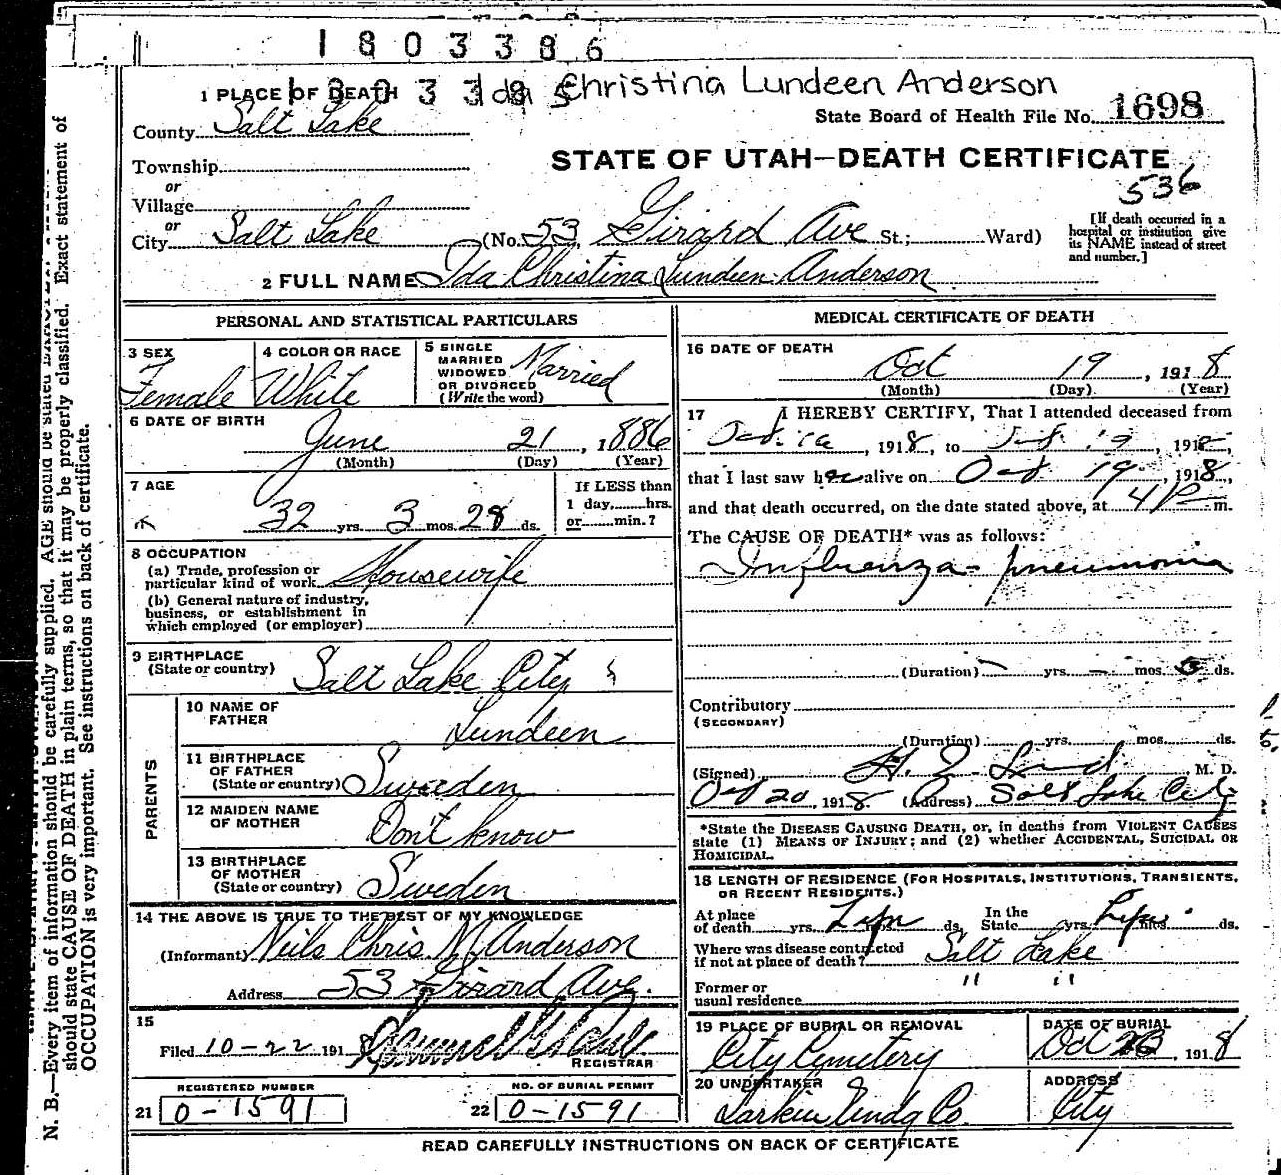 1803386
Ida Christina Lundeen Anderson
1 PLACE OF DEATH
State Board of Health File No. 1698
County Salt Lake
STATE OF UTAH—DEATH CERTIFICATE
Township
or
Village
536
or
City Salt Lake (No. 53, Girard Ave St.; Ward)
[If death occurred in a
hospital or institution give
its NAME instead of street
and number.]
2 FULL NAME Ida Christina Lundeen Anderson
PERSONAL AND STATISTICAL PARTICULARS
3 SEX
Female
4 COLOR OR RACE
White
5 SINGLE
MARRIED
WIDOWED
OR DIVORCED
(Write the word)
Married
6 DATE OF BIRTH
June 21, 1886
(Month) (Day) (Year)
7 AGE
32 yrs. 3 mos. 28 ds.
If LESS than
1 day, hrs.
or min.?
8 OCCUPATION
(a) Trade, profession or
particular kind of work Housewife
(b) General nature of industry,
business, or establishment in
which employed (or employer)
9 BIRTHPLACE
(State or country) Salt Lake City
PARENTS
10 NAME OF
FATHER Lundeen
11 BIRTHPLACE
OF FATHER
(State or country) Sweden
12 MAIDEN NAME
OF MOTHER Don't know
13 BIRTHPLACE
OF MOTHER
(State or country) Sweden
14 THE ABOVE IS TRUE TO THE BEST OF MY KNOWLEDGE
(Informant) Neils Chris M Anderson
Address 53 Girard Ave.
15
Filed 10-22 1918
REGISTRAR
REGISTERED NUMBER
21 0-1591
NO. OF BURIAL PERMIT
22 0-1591
MEDICAL CERTIFICATE OF DEATH
16 DATE OF DEATH
Oct 19, 1918
(Month) (Day) (Year)
17 I HEREBY CERTIFY, That I attended deceased from
, 1918, to , 1918,
that I last saw her alive on Oct 19, 1918,
and that death occurred, on the date stated above, at 4 P m.
The CAUSE OF DEATH* was as follows:
Influenza - pneumonia
(Duration) yrs. mos. ds.
Contributory
(SECONDARY)
(Duration) yrs. mos. ds.
(Signed) M. D.
Oct 20, 1918 (Address) Salt Lake City
*State the DISEASE CAUSING DEATH, or, in deaths from VIOLENT CAUSES
state (1) MEANS OF INJURY; and (2) whether ACCIDENTAL, SUICIDAL OR
HOMICIDAL.
18 LENGTH OF RESIDENCE (FOR HOSPITALS, INSTITUTIONS, TRANSIENTS,
OR RECENT RESIDENTS.)
At place
of death yrs. mos. ds.
In the
State yrs. mos. ds.
Where was disease contracted
if not at place of death? Salt Lake
Former or
usual residence " "
19 PLACE OF BURIAL OR REMOVAL
City Cemetery
DATE OF BURIAL
Oct 23, 1918
20 UNDERTAKER
Larkin Undg Co.
ADDRESS
City
READ CAREFULLY INSTRUCTIONS ON BACK OF CERTIFICATE
N. B.—Every item of information should be carefully supplied. AGE should be stated Exact statement of
should state CAUSE OF DEATH in plain terms, so that it may be properly classified.
OCCUPATION is very important. See instructions on back of certificate.